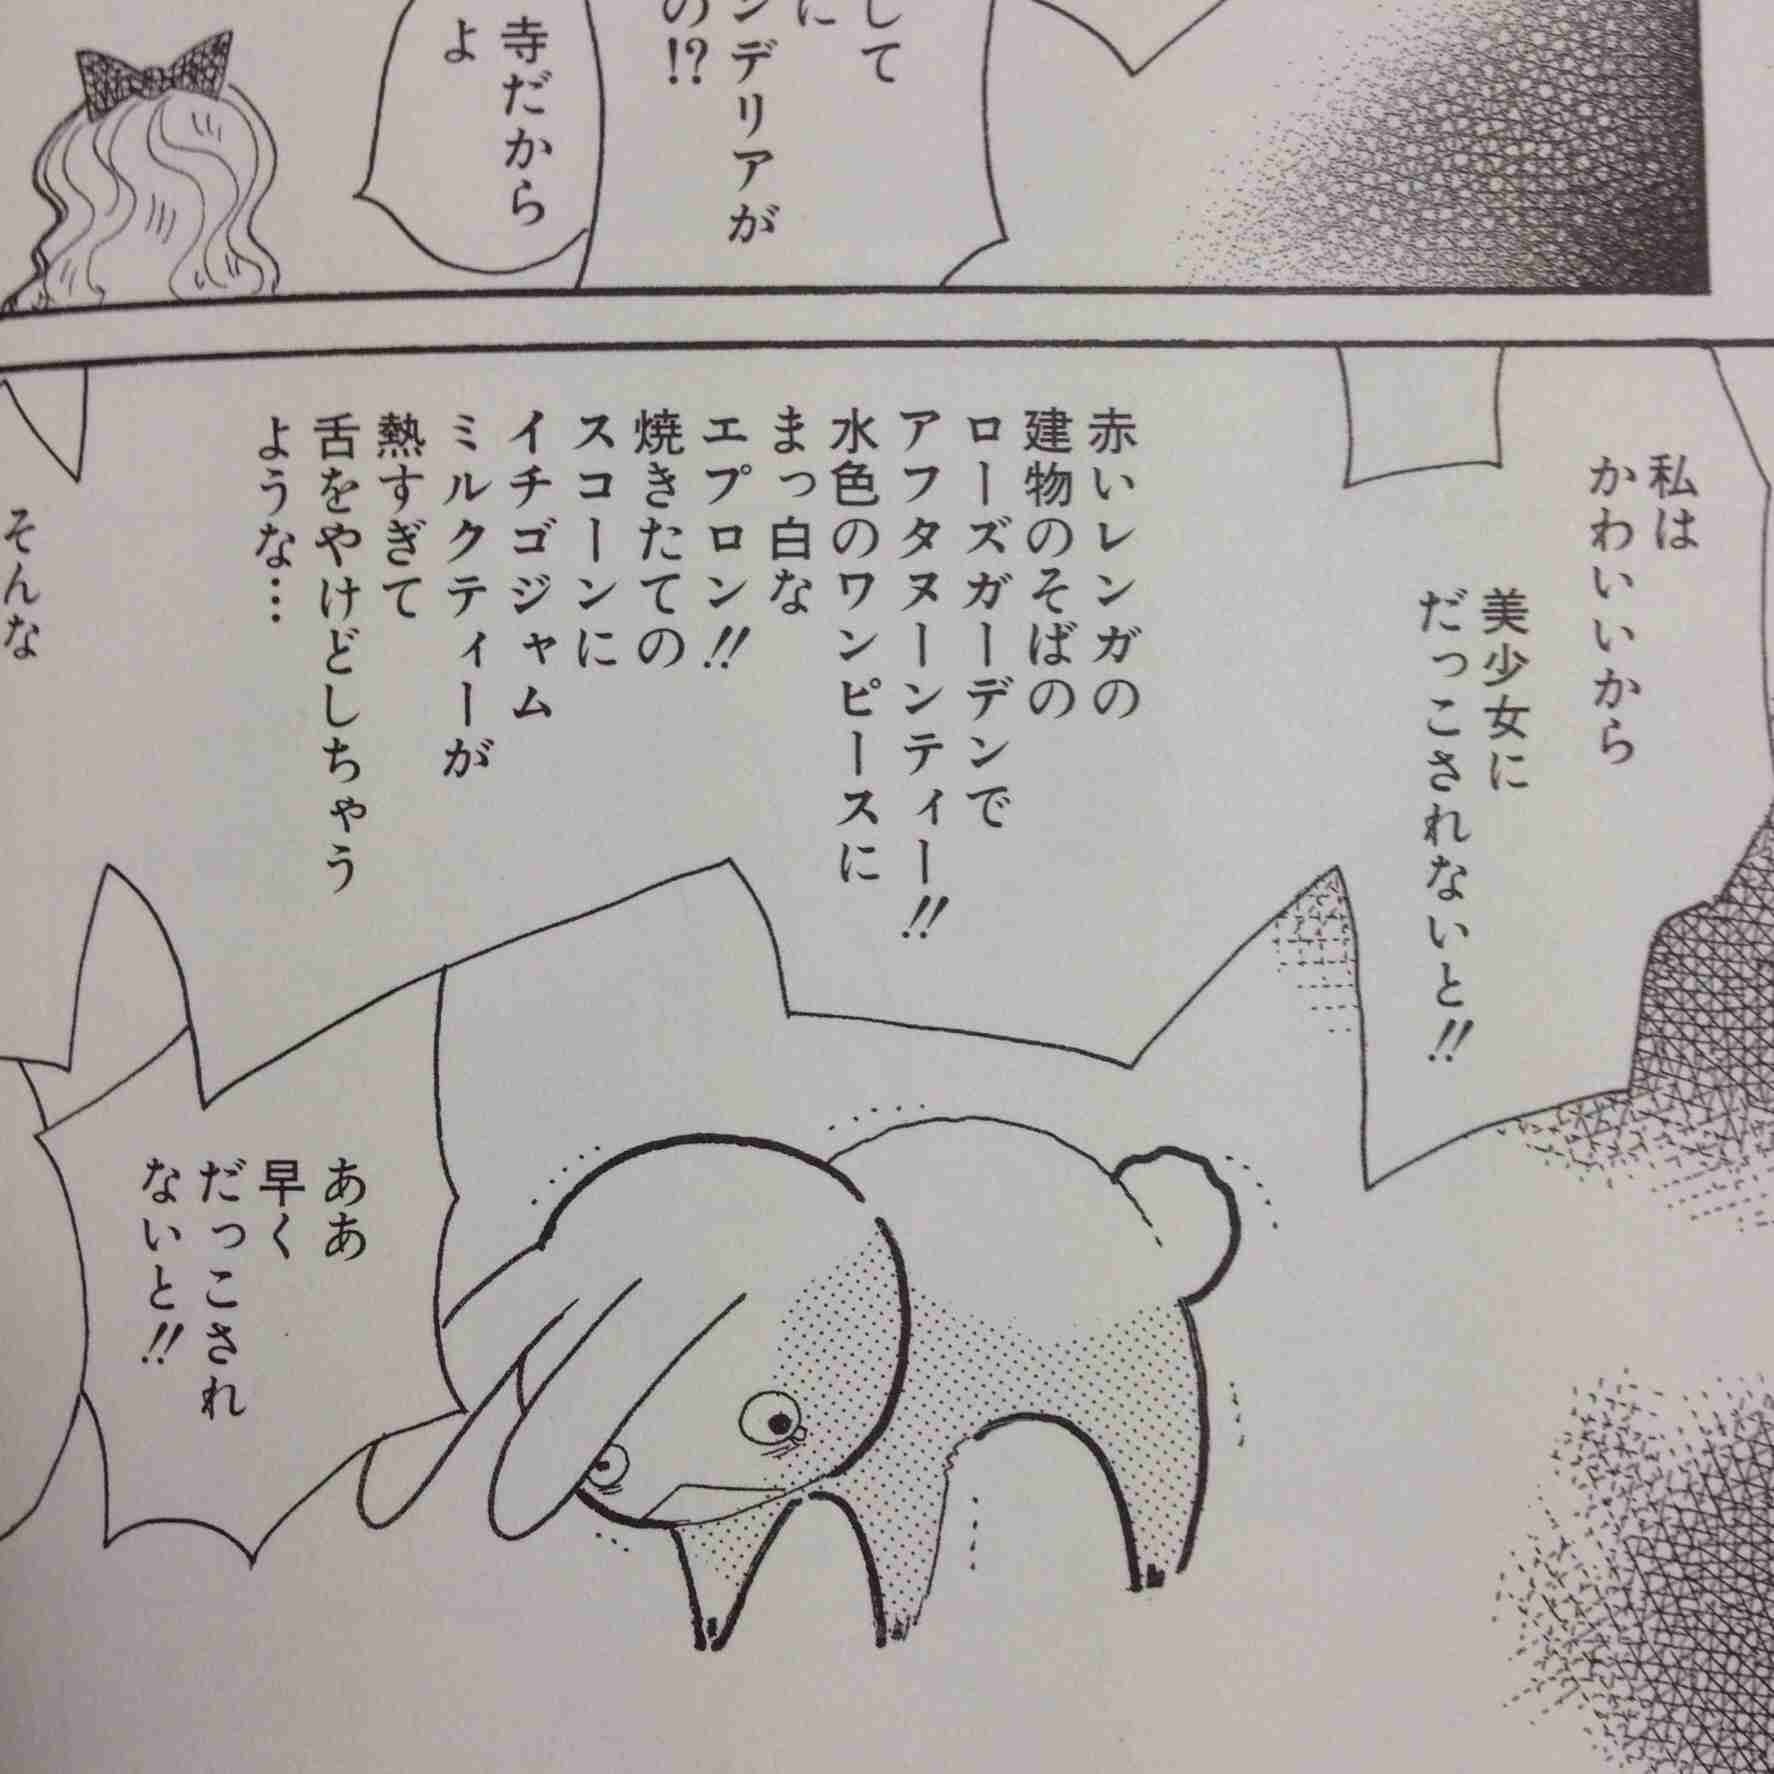 して
に
ンデリアが
の!?
寺だから
よ
私は
かわいいから
美少女に
だっこされないと!!
赤いレンガの
建物のそばの
ローズガーデンで
アフタヌーンティー!!
水色のワンピースに
まっ白な
エプロン!!
焼きたての
スコーンに
イチゴジャム
ミルクティーが
熱すぎて
舌をやけどしちゃう
ような…
そんな
ああ
早く
だっこされ
ないと!!